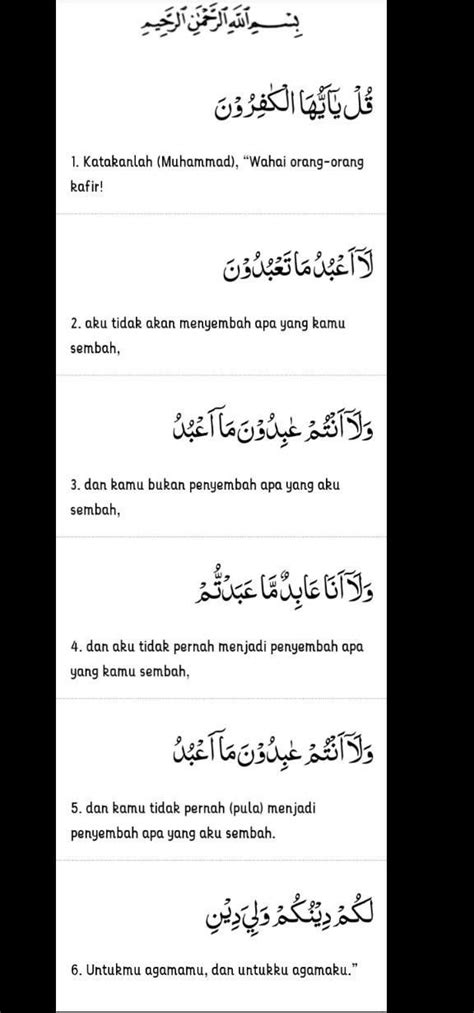 بِسْمِ اللّٰهِ الرَّحْمٰنِ الرَّحِيْمِ
قُلْ يٰٓاَيُّهَا الْكٰفِرُوْنَ
1. Katakanlah (Muhammad), “Wahai orang-orang
kafir!
لَآ اَعْبُدُ مَا تَعْبُدُوْنَ
2. aku tidak akan menyembah apa yang kamu
sembah,
وَلَآ اَنْتُمْ عٰبِدُوْنَ مَآ اَعْبُدُ
3. dan kamu bukan penyembah apa yang aku
sembah,
وَلَآ اَنَا۠ عَابِدٌ مَّا عَبَدْتُّمْ
4. dan aku tidak pernah menjadi penyembah apa
yang kamu sembah,
وَلَآ اَنْتُمْ عٰبِدُوْنَ مَآ اَعْبُدُ
5. dan kamu tidak pernah (pula) menjadi
penyembah apa yang aku sembah.
لَكُمْ دِيْنُكُمْ وَلِيَ دِيْنِ
6. Untukmu agamamu, dan untukku agamaku.”